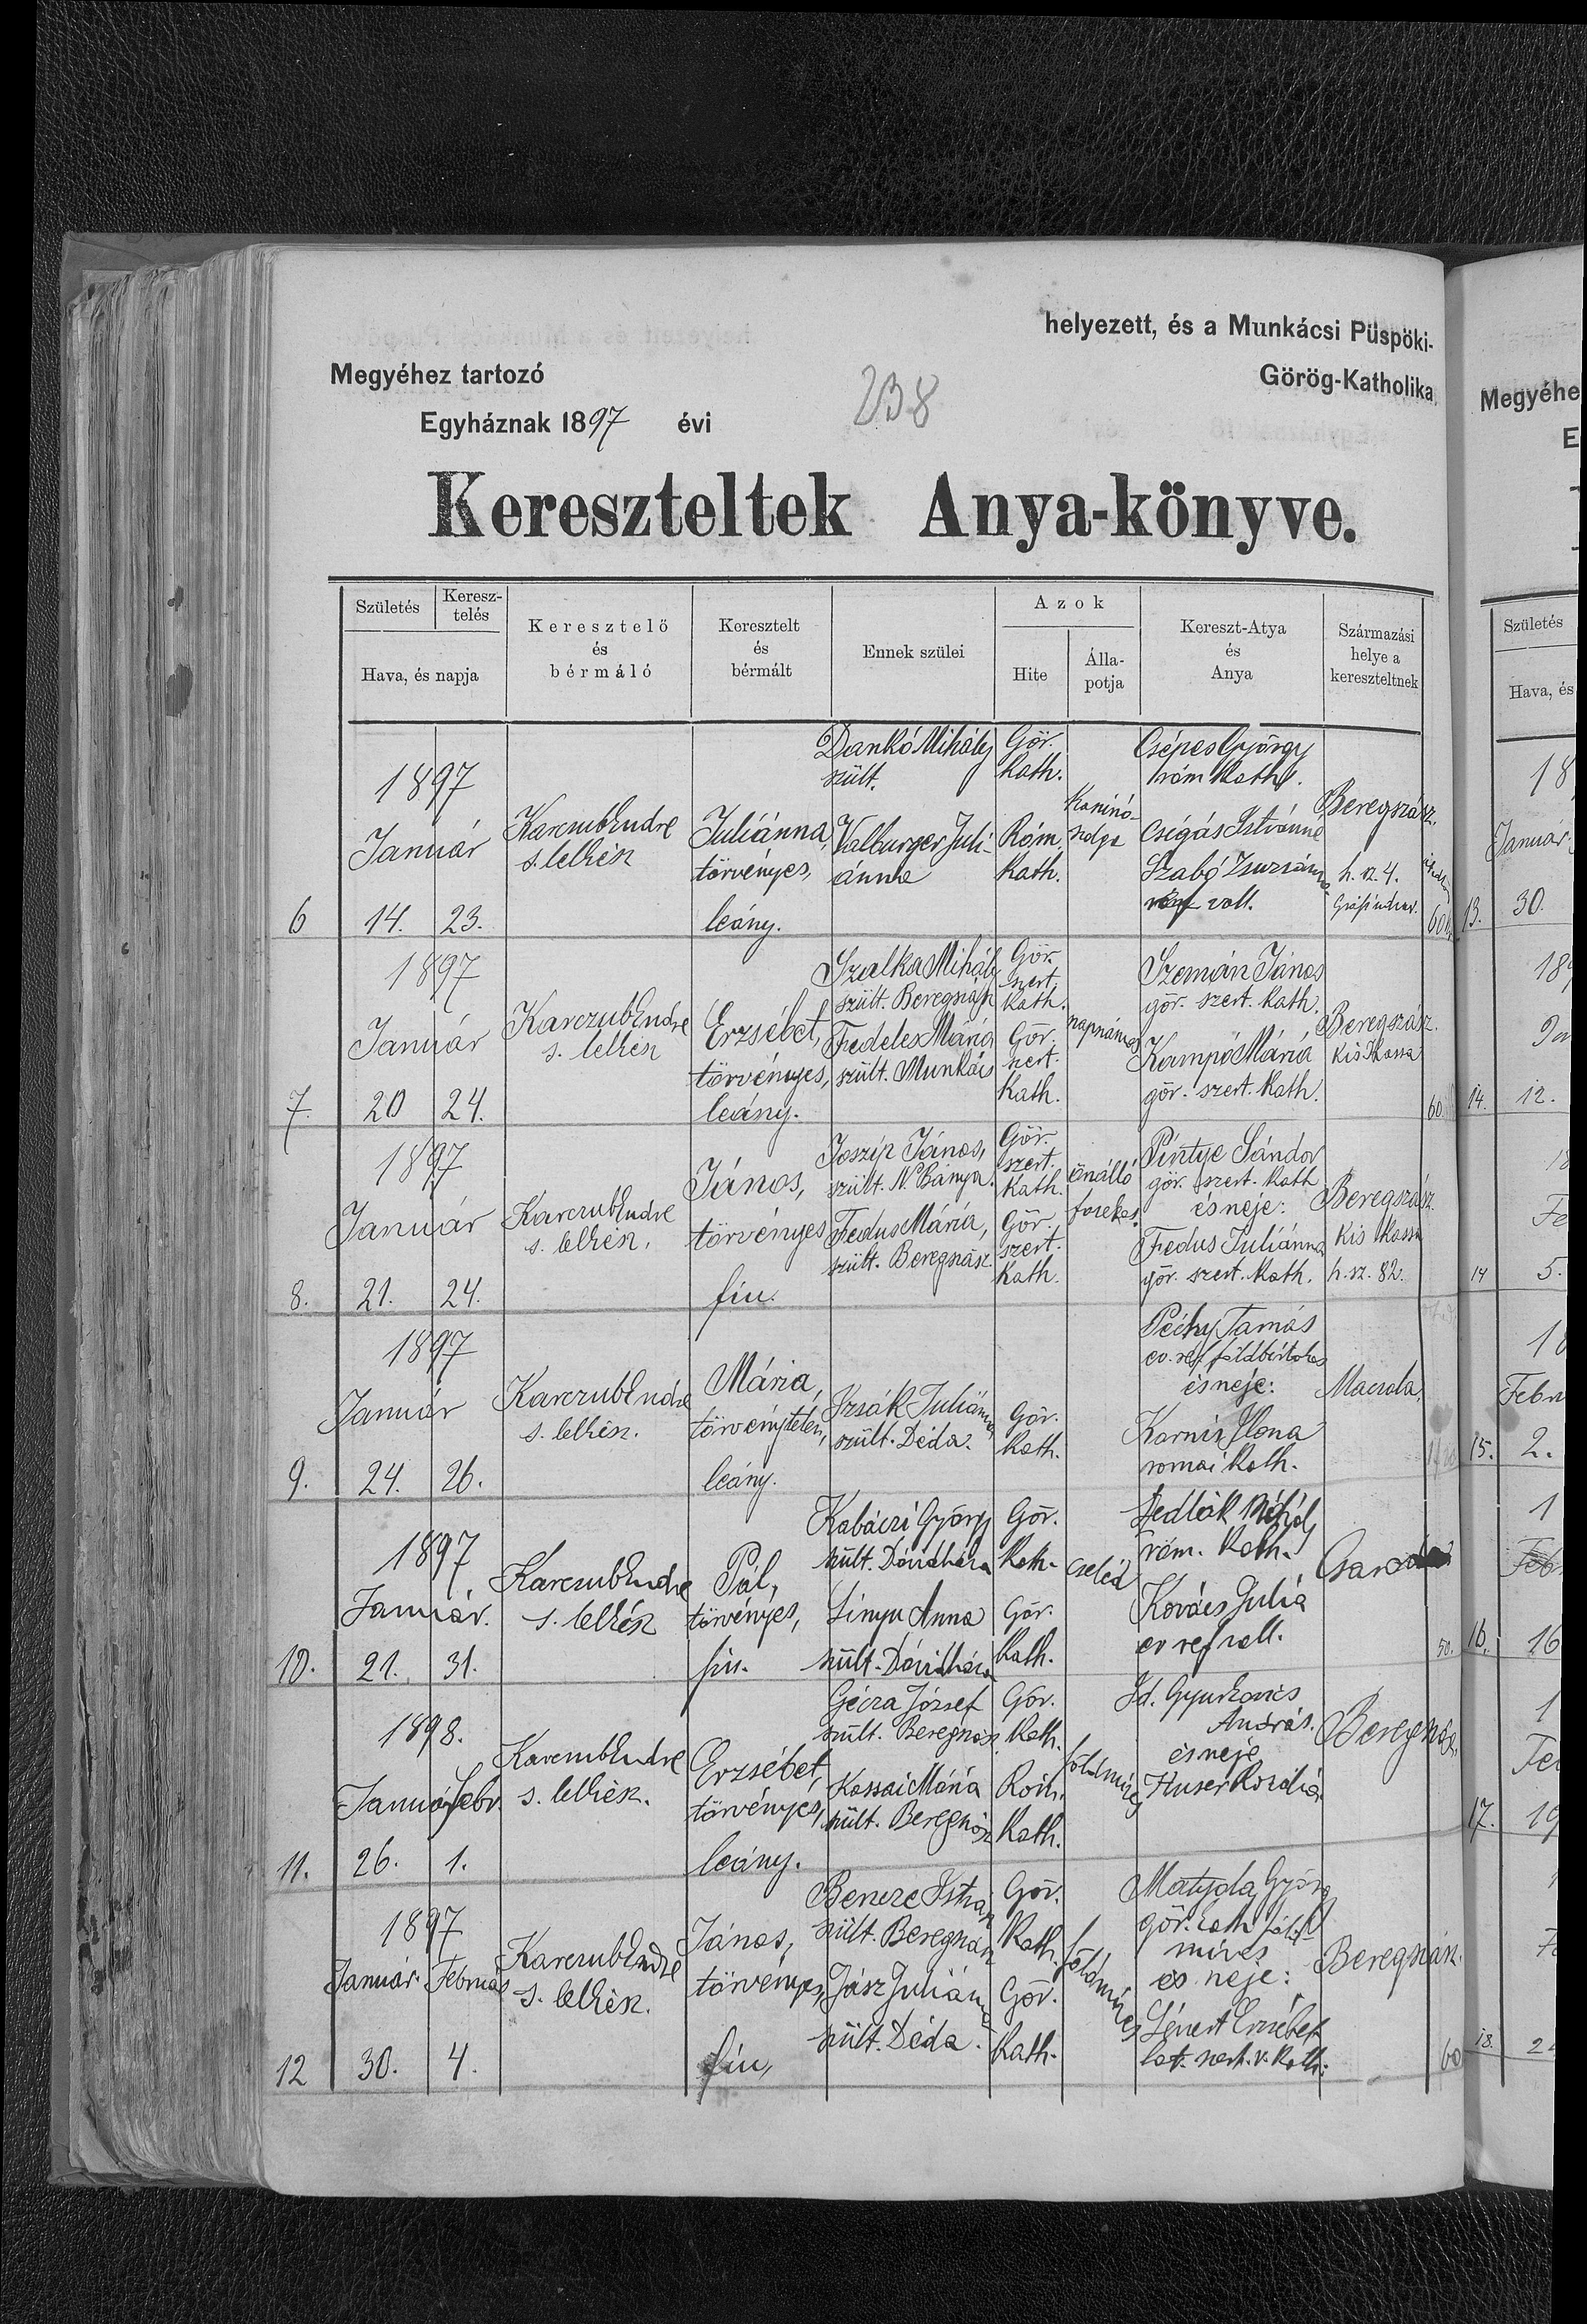 helyezett, és a Munkácsi Püspöki-
Megyéhez tartozó
Görög-Katholika
Egyháznak 1897 évi
238
Kereszteltek Anya-könyve.
Születés
Keresz-
telés
Hava, és napja
Keresztelő
és
bérmáló
Keresztelt
és
bérmált
Ennek szülei
Azok
Hite
Álla-
potja
Kereszt-Atya
és
Anya
Származási
helye a
kereszteltnek
6
1897
Január
14. 23.
Karczub Endre
s. lelkész
Juliánna,
törvényes,
leány.
Dankó Mihály
szült.
Valburger Juli-
ánna
Gör.
Kath.
Róm.
Kath.
Csépes György
róm Kath.
Csigás Istvánné
Szabó Zsuzsánna
vall.
Beregszász.
h. sz. 4.
7.
1897
Január
20 24.
Karczub Endre
s. lelkész
Erzsébet,
törvényes,
leány.
Szalka Mihály
szült. Beregszász
Fedeles Mária
szült. Munkács
Gör.
szert.
Kath.
Gör.
szert.
Kath.
napszámos
Szemán János
gör. szert. Kath.
Kampó Mária
gör. szert. Kath.
Beregszász.
Kis Kassa
60
8.
1897
Január
21. 24.
Karczub Endre
s. lelkész.
János,
törvényes
fiu.
Joszip János,
szült. N. Bánya.
Fedus Mária,
szült. Beregszász.
Gör.
szert.
Kath.
Gör.
szert.
Kath.
önálló
Pintye Sándor
gör. szert. Kath
és neje:
Fedus Juliánna
gör. szert. Kath.
Beregszász.
Kis Kassa
h. sz. 82.
9.
1897
Január
24. 26.
Karczub Endre
s. lelkész.
Mária,
törvénytelen,
leány.
Izsák Juliánna,
szült. Déda.
Gör.
Kath.
Péchy Tamás
ev. ref. földbirtokos
és neje:
Karnis Ilona
romai Kath.
Macsola,
10.
1897
Január.
21. 31.
Karczub Endre
s. lelkész
Pál,
törvényes,
fiu.
Kabáczi György
szült. Dávidháza
Linyu Anna
szült. Dávidháza
Gör.
Kath.
Gör.
Kath.
cseléd
Sedlák Mihály
róm. Kath.
Kovács Julia
ev ref vall.
50.
11.
1898.
Január Febr.
26. 1.
Karczub Endre
s. lelkész.
Erzsébet,
törvényes,
leány.
Gécza József
szült. Beregszász
Kassai Mária
szült. Beregszász
Gör.
Kath.
Róm.
Kath.
földmíves
Id. Gyurkovics
András.
és neje
Huser Rozália
Beregszász.
12
1897
Január. Február
30. 4.
Karczub Endre
s. lelkész.
János,
törvényes,
fiu,
Bencze István
szült. Beregszász
Jász Juliánna
szült. Déda.
Gör.
Kath.
Gör.
Kath.
földmíves
Matyola György
gör. kath föld
míves
és neje:
Lénert Erzsébet
lat. szert. v. Kath.
Beregszász.
60
Megyéhe
E
Születés
Hava, és
18
Január
13. 30.
14. 12.
14 5.
Febru
15. 2.
16. 16
17. 19
18. 2